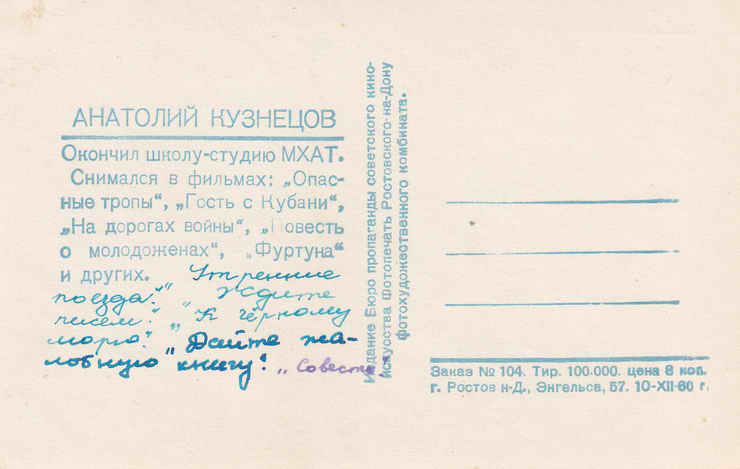 АНАТОЛИЙ КУЗНЕЦОВ
Окончил школу-студию МХАТ.
Снимался в фильмах: „Опас-
ные тропы“, „Гость с Кубани“,
„На дорогах войны“, „Повесть
о молодоженах“, „Фуртуна“
и других. Утренние
поезда.“ „Ждите
писем.“ „К Чёрному
морю.“ „Дайте жа-
лобную книгу! „Совесть“
Издание Бюро пропаганды советского кино-
искусства Фотопечать Ростовского-на-Дону
фотохудожественного комбината.
Заказ № 104. Тир. 100.000. цена 8 коп.
г. Ростов н-Д., Энгельса, 57. 10-XII-60 г.